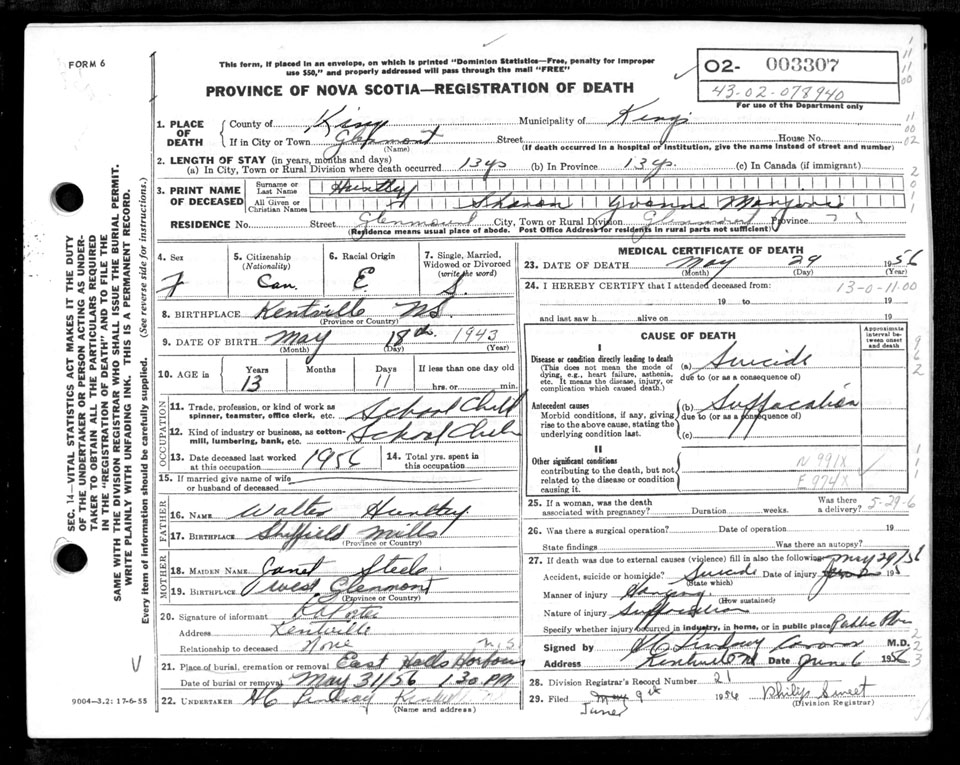 FORM 6
This form, if placed in an envelope, on which is printed "Dominion Statistics—Free, penalty for improper
use $50," and properly addressed will pass through the mail "FREE"
O2- 003307
43-02-078940
For use of the Department only
PROVINCE OF NOVA SCOTIA—REGISTRATION OF DEATH
1. PLACE OF DEATH
County of Kings Municipality of Kings
If in City or Town Glenmont Street House No.
(Name) (If death occurred in a hospital or institution, give the name instead of street and number)
2. LENGTH OF STAY (in years, months and days)
(a) In City, Town or Rural Division where death occurred 13 ys (b) In Province 13 ys. (c) In Canada (if immigrant)
3. PRINT NAME OF DECEASED
Surname or Last Name Huntley
All Given or Christian Names Sharon Yvonne Marjorie
RESIDENCE No. Street Glenmount City, Town or Rural Division Glenmount Province
(Residence means usual place of abode. Post Office Address for residents in rural parts not sufficient)
4. Sex F
5. Citizenship (Nationality) Can.
6. Racial Origin E.
7. Single, Married, Widowed or Divorced (write the word) S.
8. BIRTHPLACE Kentville N.S.
(Province or Country)
9. DATE OF BIRTH May 18th 1943
(Month) (Day) (Year)
10. AGE in Years Months Days If less than one day old
13 11 hrs. or min.
OCCUPATION
11. Trade, profession, or kind of work as spinner, teamster, office clerk, etc. School Child
12. Kind of industry or business, as cotton-mill, lumbering, bank, etc. School Child
13. Date deceased last worked at this occupation 1956
14. Total yrs. spent in this occupation
15. If married give name of wife or husband of deceased
FATHER
16. NAME Walter Huntley
17. BIRTHPLACE Sheffield Mills
(Province or Country)
MOTHER
18. MAIDEN NAME Janet Steele
19. BIRTHPLACE West Glenmont
(Province or Country)
20. Signature of informant Porter
Address Kentville
Relationship to deceased None N.S.
21. Place of burial, cremation or removal East Halls Harbour
Date of burial or removal May 31/56 1.30 PM
22. UNDERTAKER H C Lindsay
(Name and address)
9004—3.2: 17-6-55
V
SEC. 14—VITAL STATISTICS ACT MAKES IT THE DUTY
OF THE UNDERTAKER OR PERSON ACTING AS UNDER-
TAKER TO OBTAIN ALL THE PARTICULARS REQUIRED
IN THE "REGISTRATION OF DEATH" AND TO FILE THE
SAME WITH THE DIVISION REGISTRAR WHO SHALL ISSUE THE BURIAL PERMIT.
WRITE PLAINLY WITH UNFADING INK. THIS IS A PERMANENT RECORD.
Every item of information should be carefully supplied. (See reverse side for instructions.)
MEDICAL CERTIFICATE OF DEATH
23. DATE OF DEATH May 29 1956
(Month) (Day) (Year)
24. I HEREBY CERTIFY that I attended deceased from:
13-0-11.00
19 to 19
and last saw h alive on 19
CAUSE OF DEATH
Approximate interval between onset and death
I
Disease or condition directly leading to death
(This does not mean the mode of dying, e.g., heart failure, asthenia, etc. It means the disease, injury, or complication which caused death.)
(a) Suicide
due to (or as a consequence of)
Antecedent causes
Morbid conditions, if any, giving rise to the above cause, stating the underlying condition last.
(b) Suffocation
due to (or as a consequence of)
(c)
II
Other significant conditions
contributing to the death, but not related to the disease or condition causing it.
N 991X
E 974X
25. If a woman, was the death associated with pregnancy? Duration weeks. Was there a delivery? 5-29-6
26. Was there a surgical operation? Date of operation 19
State findings Was there an autopsy?
27. If death was due to external causes (violence) fill in also the following:
Accident, suicide or homicide? Suicide Date of injury May 29/56 195
(State which)
Manner of injury Hanging
(How sustained)
Nature of injury Suffocation
Specify whether injury occurred in industry, in home, or in public place Public
Signed by H C Lindsay Coroner M.D.
Address Kentville Date June 6 1956
28. Division Registrar's Record Number 21
29. Filed May 9th 1956 Philip Sweet
June (Division Registrar)